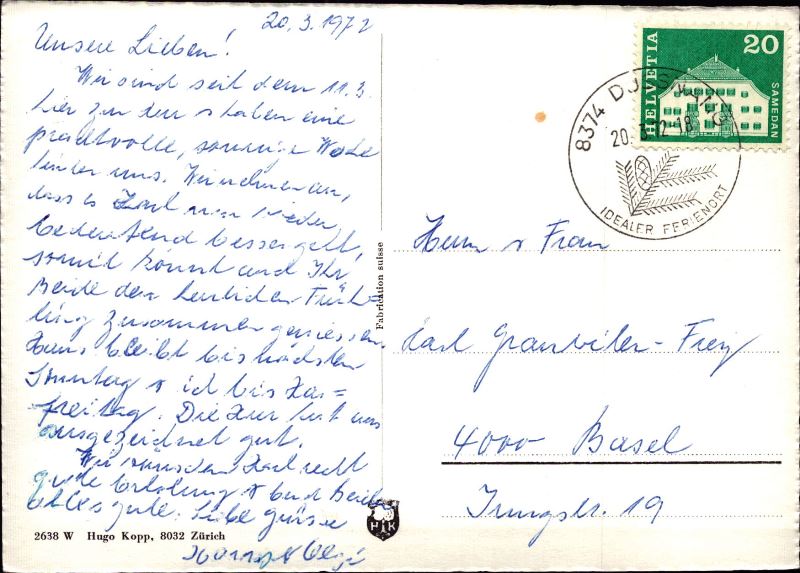 20.3.1972
Unsere Lieben!
Wir sind seit dem 11.3.
hier zur Kur & haben eine
prachtvolle, sonnige Woche
hinter uns. Wir nehmen an,
dass es Karl nun wieder
bedeutend besser geht,
somit könnt auch Ihr
Beide den herrlichen Früh=
ling zusammen geniessen.
Hans bleibt bis nächsten
Sonntag & ich bis Kar=
freitag. Die Kur tut uns
ausgezeichnet gut.
Wir wünschen Karl recht
gute Erholung & Euch Beiden
alles gute. Liebe grüsse
Hans &
2638 W Hugo Kopp, 8032 Zürich
Fabrication suisse
HK
HELVETIA
20
SAMEDAN
8374 DUSSNANG
20.3.72-18
IDEALER FERIENORT
Herrn & Frau
Karl -Frey
4000 Basel
19